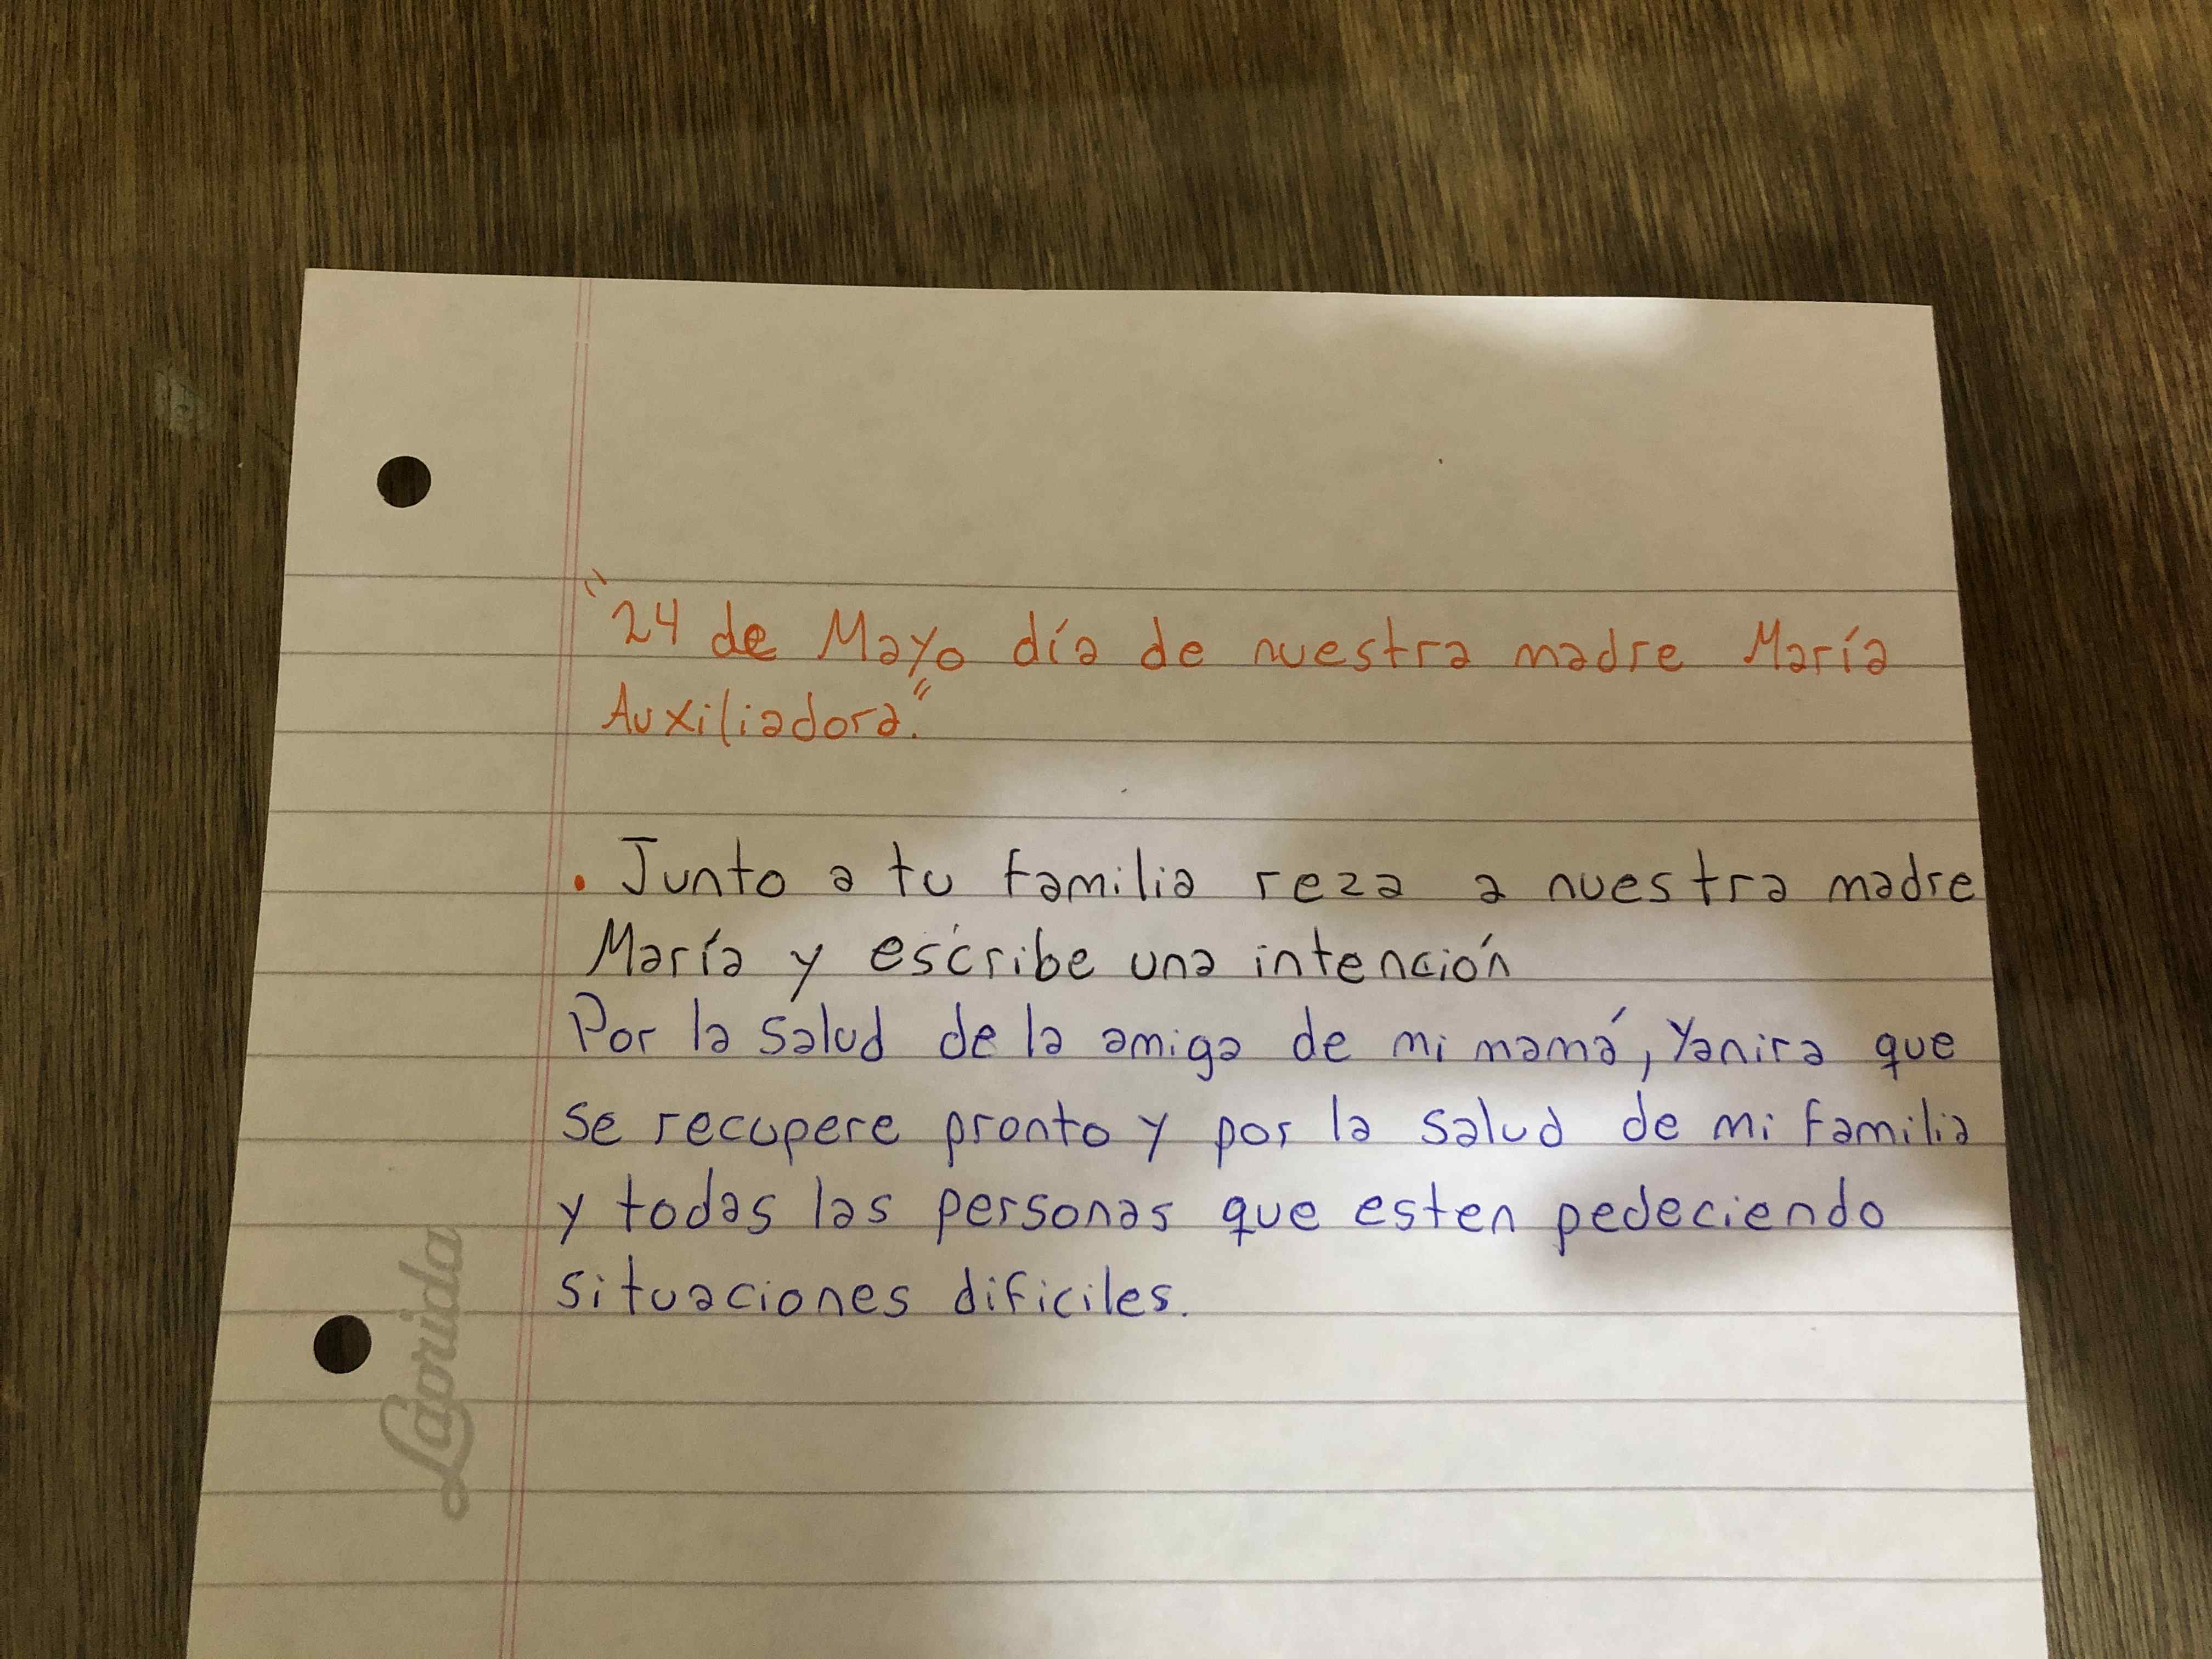 "24 de Mayo día de nuestra madre María
Auxiliadora."
. Junto a tu familia reza a nuestra madre
María y escribe una intención
Por la salud de la amiga de mi mamá, Yanira que
se recupere pronto y por la salud de mi familia
y todas las personas que esten pedeciendo
situaciones dificiles.
Laprida